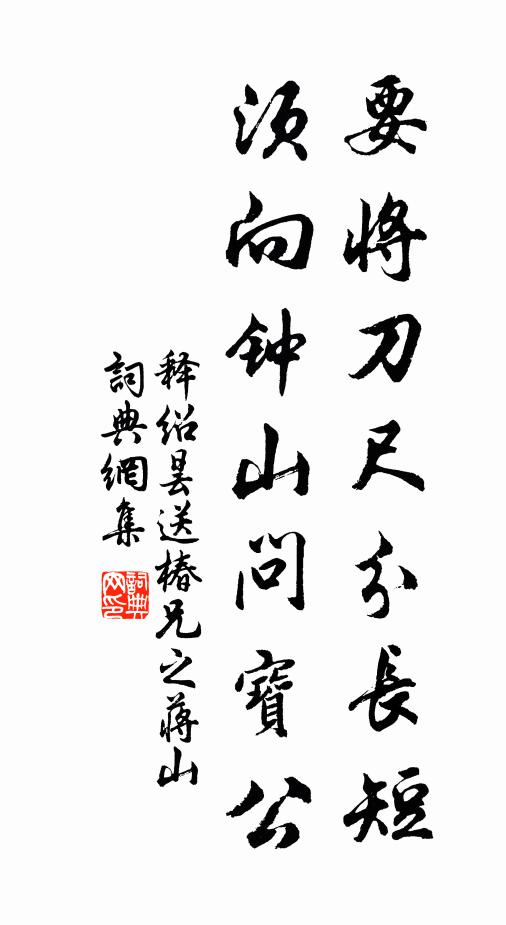 要將刀尺分長短
須向钟山問寶公
释绍曇送椿兄之蔣山
詞典網集
詞典網印